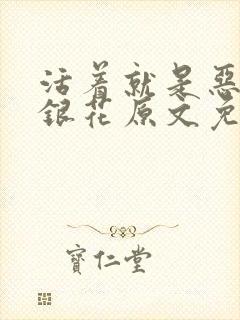 活着就是惡
銀花原文免
寶仁堂